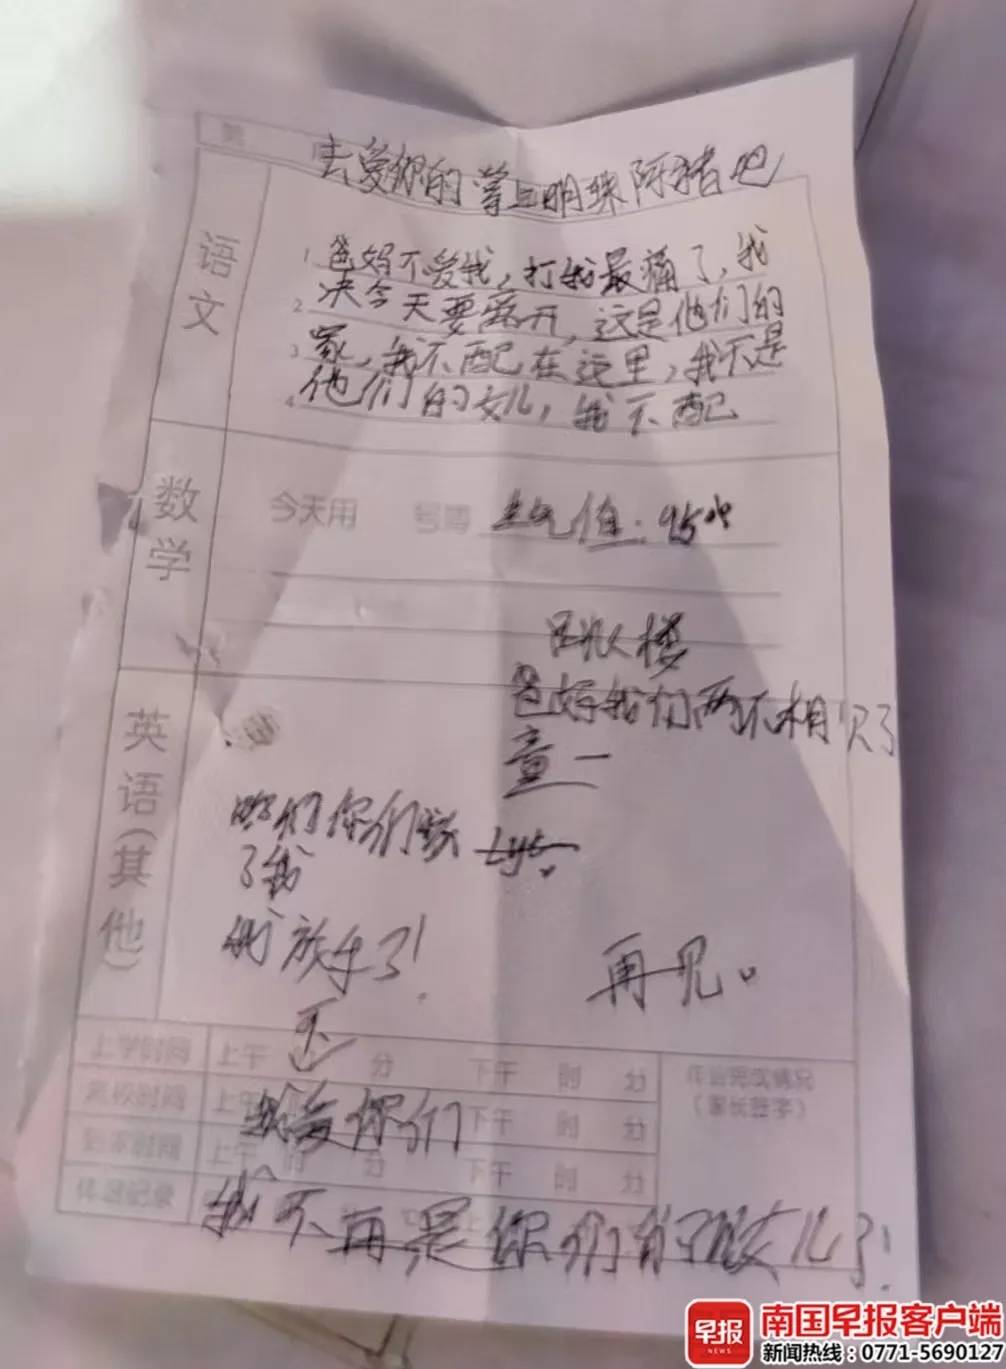 去爱你的掌上明珠阿猪吧
语文
1 爸妈不爱我，打我最痛了，我
2 决今天要离开，这是他们的
3 家，我不配在这里，我不是
4 他们的女儿，我不配
数学
今天用 号簿 生气值：95%
楼
爸好我们两不相欠了
章一
英语(其他)
你们你们
了我
我放手了！
再见。
上学时间 上午 分 下午 时 分
作业完成情况
（家长签字）
离校时间 上午 下午 时 分
我爱你们
到家时间 上午 时 分 下午 时 分
体温记录
我不再是你们的女儿了！
早报
NEWS
南国早报客户端
新闻热线：0771-5690127